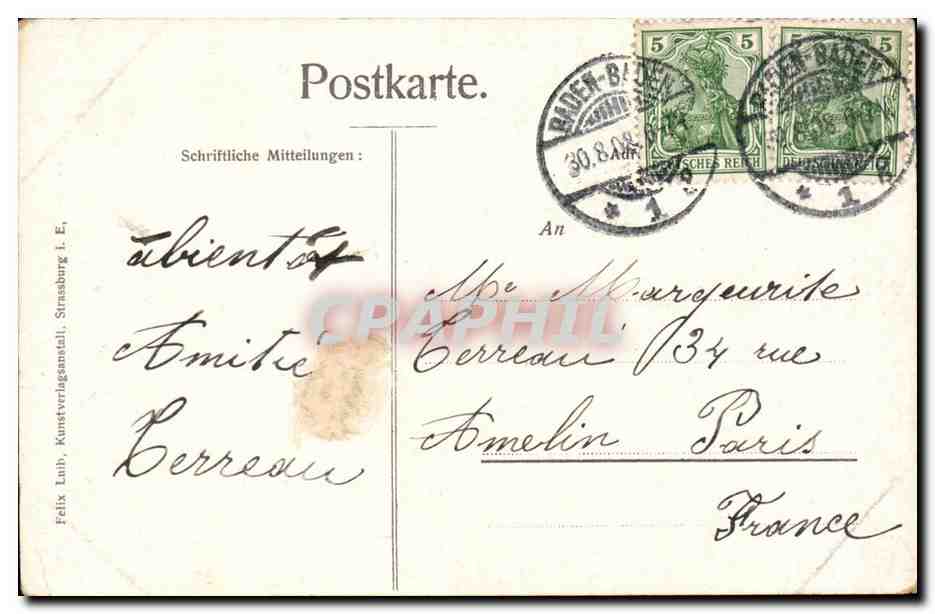 Postkarte.
Schriftliche Mitteilungen:
5 5
5 5
DEUTSCHES REICH
BADEN-BADEN
30.8.08
* 1
BADEN-BADEN
* 1
An
àbientôt
Amitié
Terreau
Me Marguerite
Terreau 34 rue
Amelin Paris
France
Felix Luib, Kunstverlagsanstalt, Strassburg i. E,
CPAPHIL